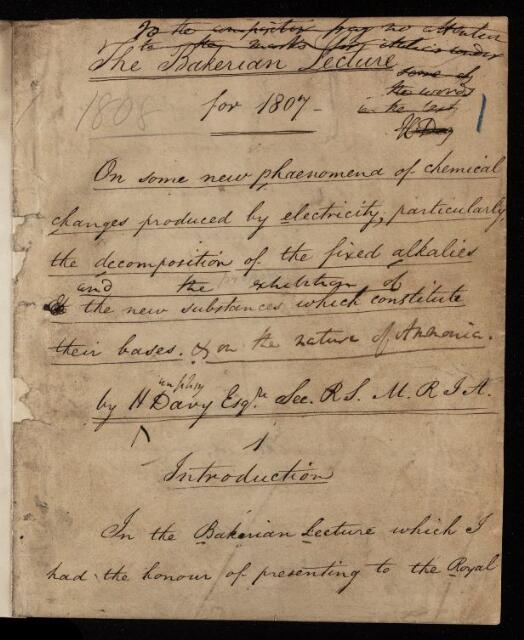 To the compositor pay no attention
to the marks for italics under
some of
the words
in the text
HDavy
The Bakerian Lecture
1808
for 1807-
On some new phaenomena of chemical
changes produced by electricity, particularly,
the decomposition of the fixed alkalies
and the exhibition of
the new substances which constitute
their bases. & on the nature of Ammonia.
umphry
by H Davy Esqre. Sec. R S. M. R I A.
1
Introduction
In the Bakerian Lecture which I
had the honour of presenting to the Royal